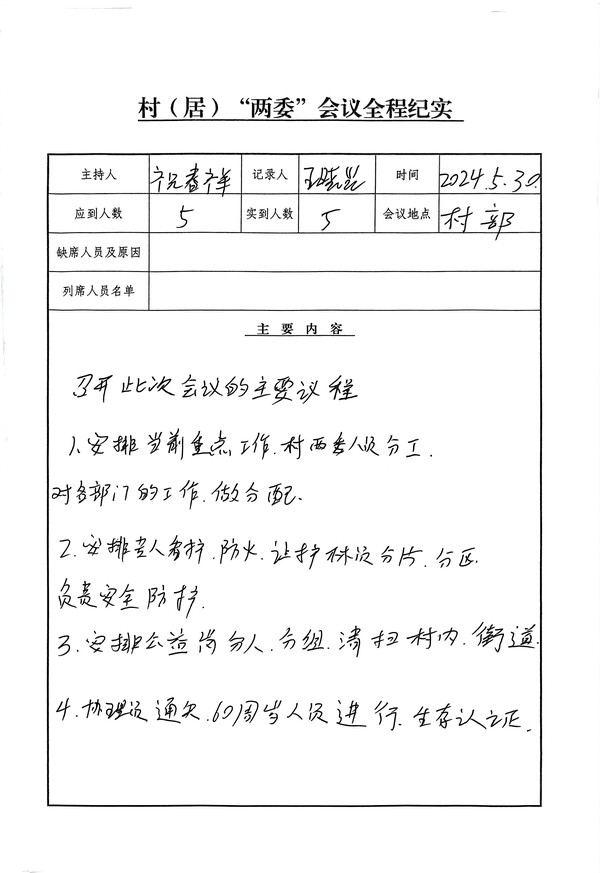 村（居）“两委”会议全程纪实
主持人 祝春祥 记录人 时间 2024.5.30.
应到人数 5 实到人数 5 会议地点 村部
缺席人员及原因
列席人员名单
主要内容
召开此次会议的主要议程
1.安排当前重点工作.村两委人员分工.
对各部门的工作.做分配.
2.安排专人看护.防火.让护林员分片.分区.
负责安全防护.
3.安排公益岗分人.分组.清扫村内.街道.
4.协理员通知.60周岁人员进行.生存认证.